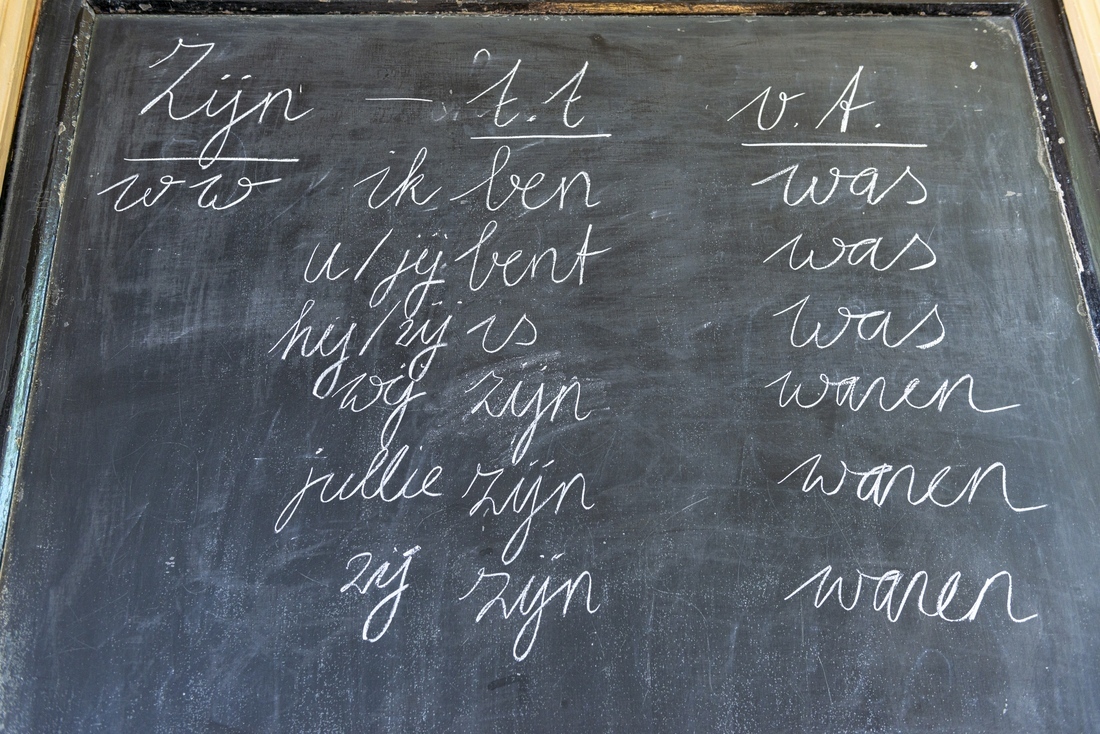 Zijn — t.t v.t.
ww ik ben was
u/jij bent was
hij/zij is was
wij zijn waren
jullie zijn waren
zij zijn waren